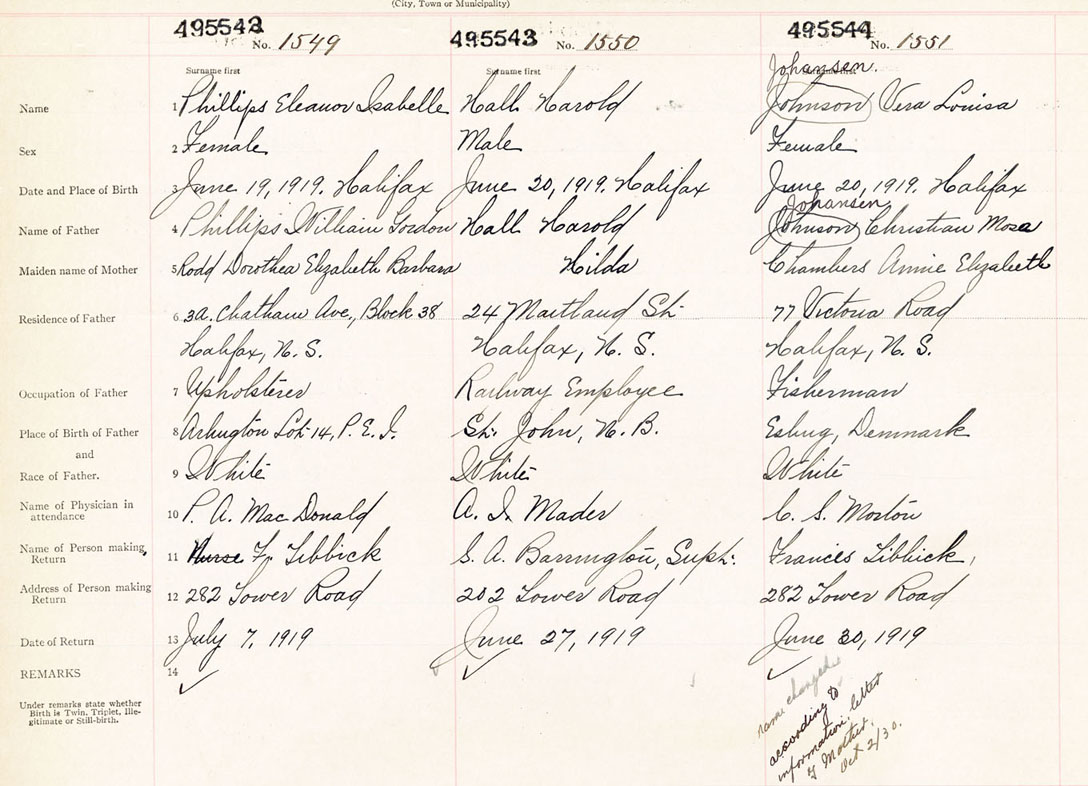 (City, Town or Municipality)
495542 No. 1549 495543 No. 1550 495544 No. 1551
Surname first Surname first Surname first
Johansen.
Name 1 Phillips Eleanor Isabelle Hall Harold Johnson Vera Louisa
Sex 2 Female Male Female
Date and Place of Birth 3 June 19, 1919. Halifax June 20, 1919. Halifax June 20, 1919. Halifax
Johansen
Name of Father 4 Phillips William Gordon Hall Harold Johnson Christian Mosa
Maiden name of Mother 5 Rodd Dorothea Elizabeth Barbara Hilda Chambers Annie Elizabeth
Residence of Father 6 3A. Chatham Ave., Block 38 24 Maitland St. 77 Victoria Road
Halifax, N. S. Halifax, N. S. Halifax, N. S.
Occupation of Father 7 Upholsterer Railway Employee Fisherman
Place of Birth of Father 8 Arlington Lot 14, P. E. I. St. John, N. B. Esbug, Denmark
and
Race of Father. 9 White White White
Name of Physician in
attendance 10 P. A. Mac Donald A. I. Mader C. S. Morton
Name of Person making
Return 11 Nurse F. Tibbick S. A. Barrington, Supt. Frances Tibbick,
Address of Person making
Return 12 282 Tower Road 202 Tower Road 282 Tower Road
Date of Return 13 July 7, 1919 June 27, 1919 June 30, 1919
REMARKS 14
Under remarks state whether
Birth is Twin, Triplet, Ille-
gitimate or Still-birth.
name changed
according to
information, letter
of Mother.
Oct 2/30.